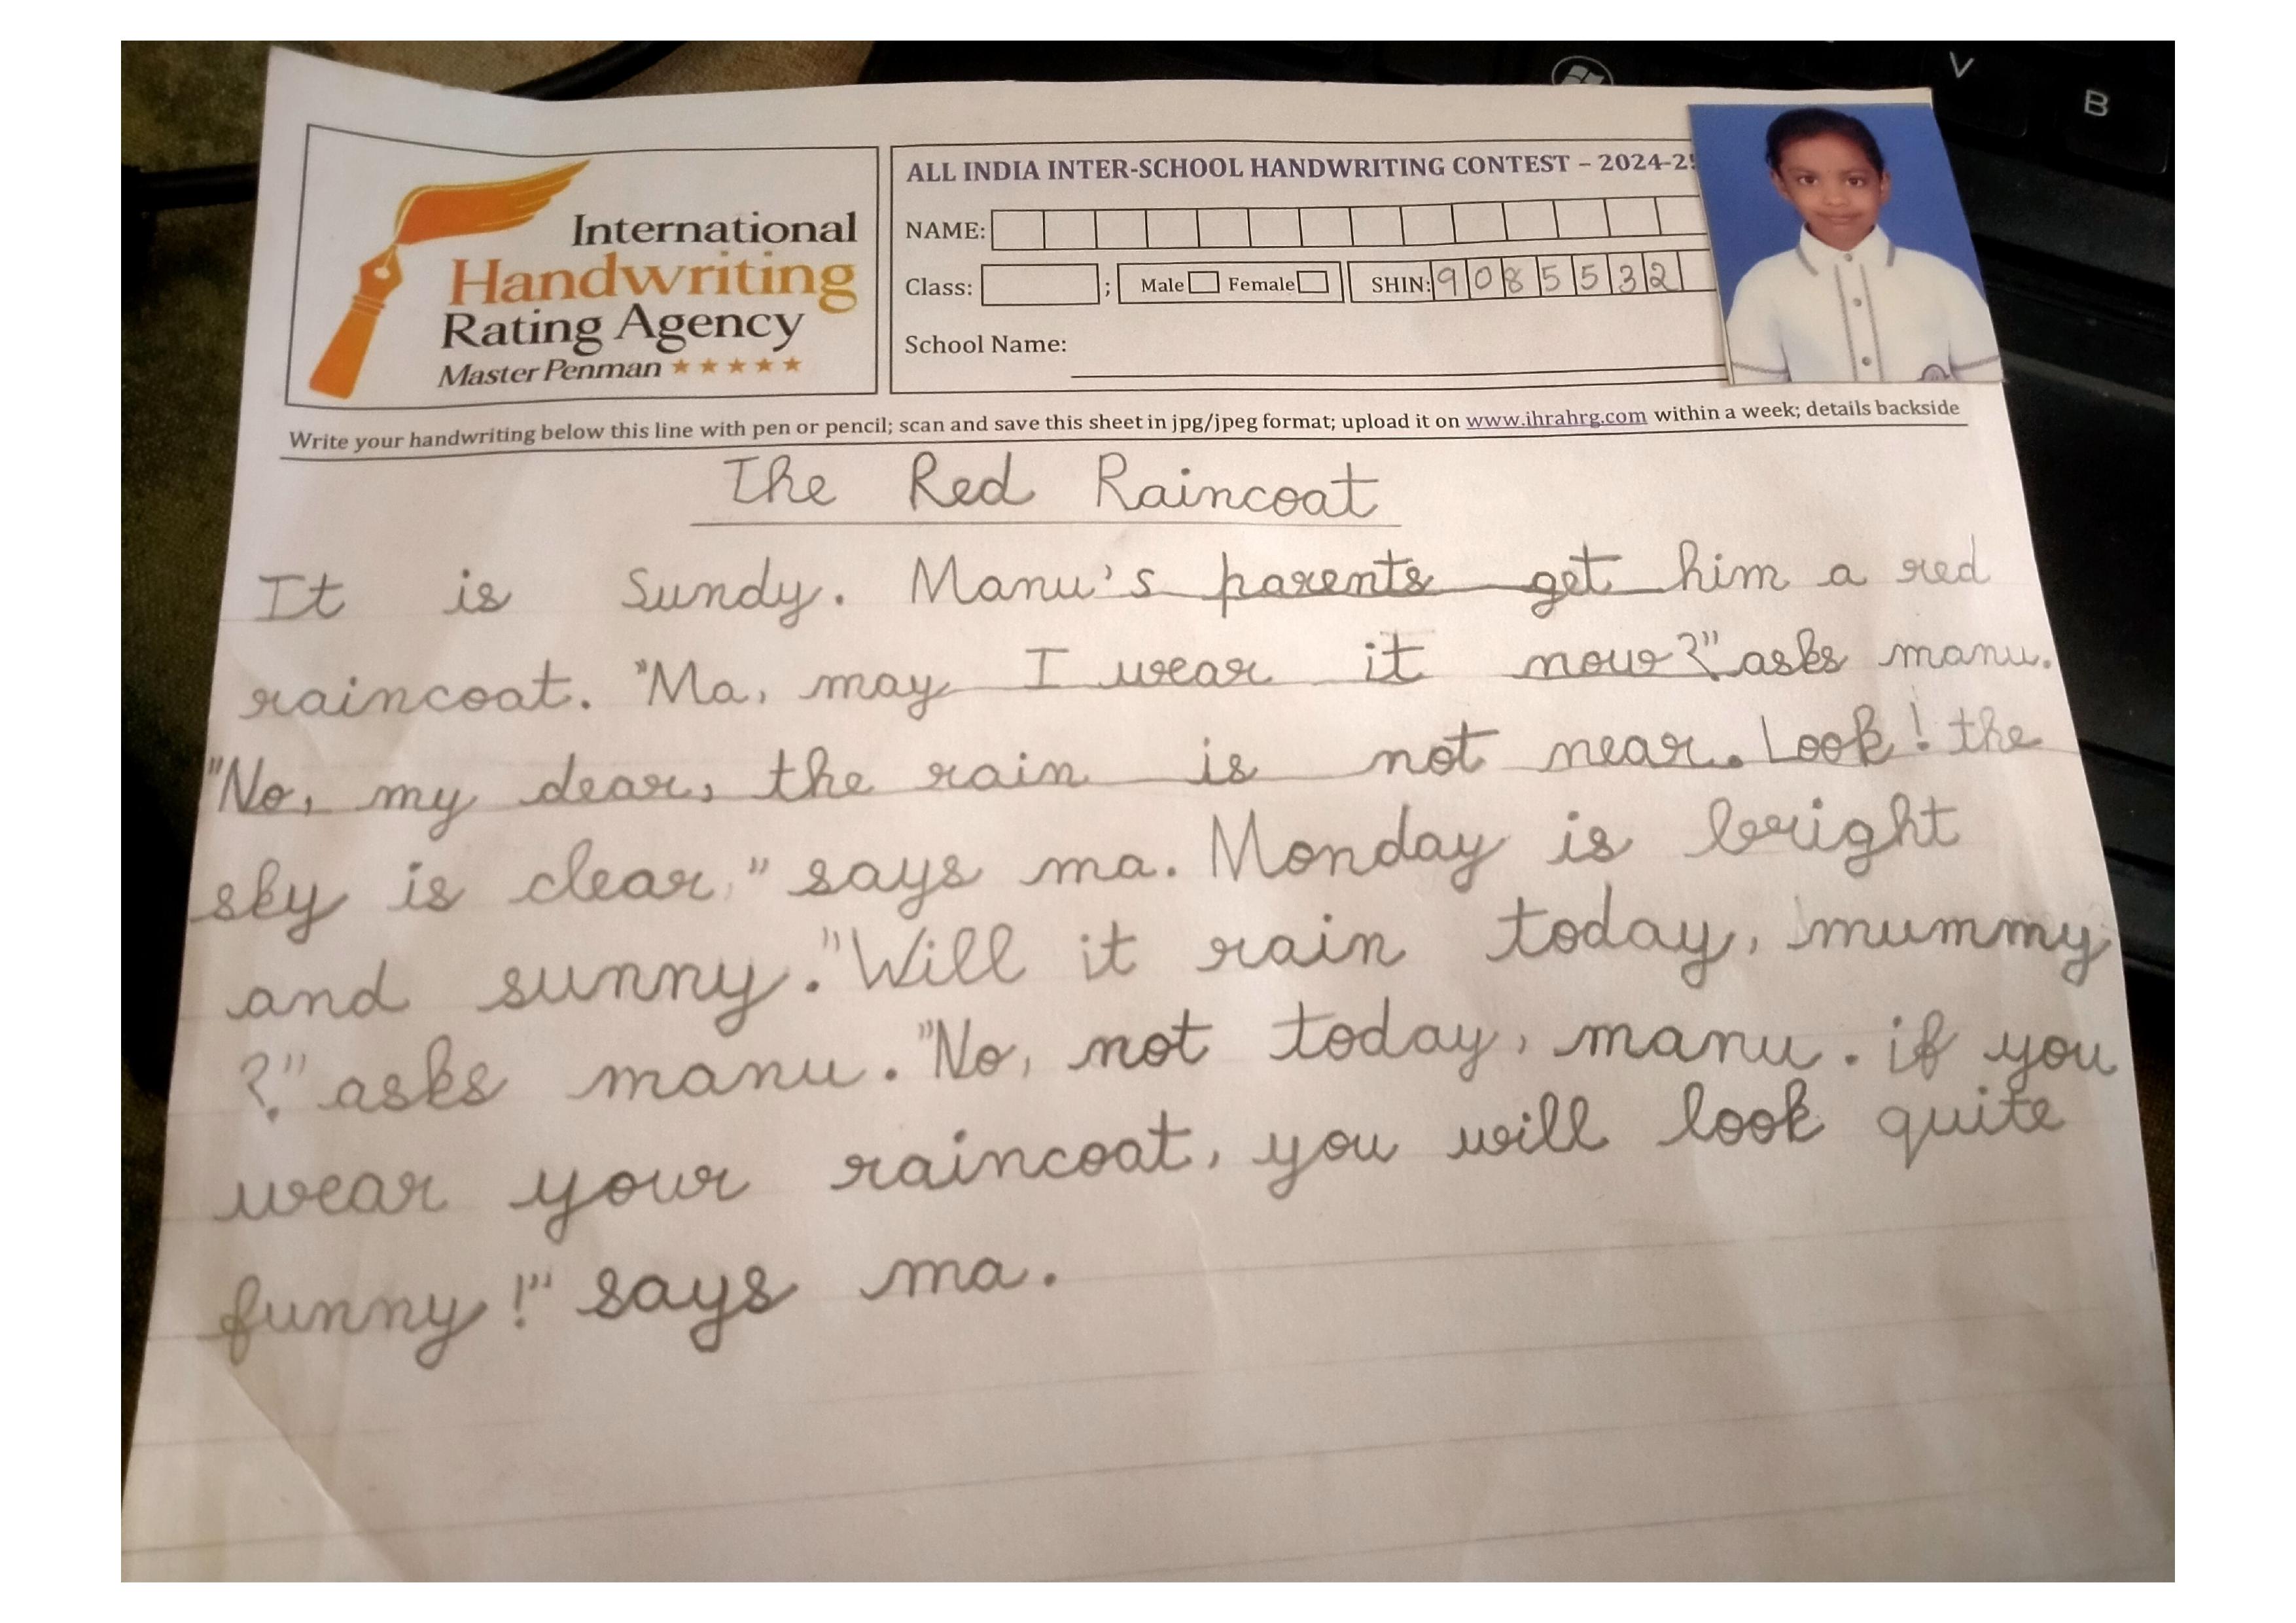 International
Handwriting
Rating Agency
Master Penman
ALL INDIA INTER-SCHOOL HANDWRITING CONTEST – 2024-2
NAME:
Class: ; Male Female SHIN: 9085532
School Name:
Write your handwriting below this line with pen or pencil; scan and save this sheet in jpg/jpeg format; upload it on www.ihrahrg.com within a week; details backside
The Red Raincoat
It is Sundy. Manu's parents get him a red
raincoat. "Ma, may I wear it now?" asks manu.
"No, my dear, the rain is not near. Look! the
sky is clear," says ma. Monday is bright
and sunny. "Will it rain today, mummy
?" asks manu. "No, not today, manu. if you
wear your raincoat, you will look quite
funny!" says ma.
V
B